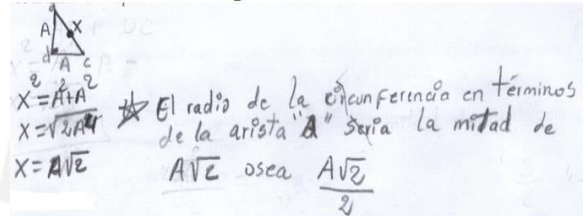 A X
d A c
X² = A² + A²
X = √2A²
X = A√2
☆ El radio de la circunferencia en términos
de la arista "A" seria la mitad de
A√2 osea A√2/2